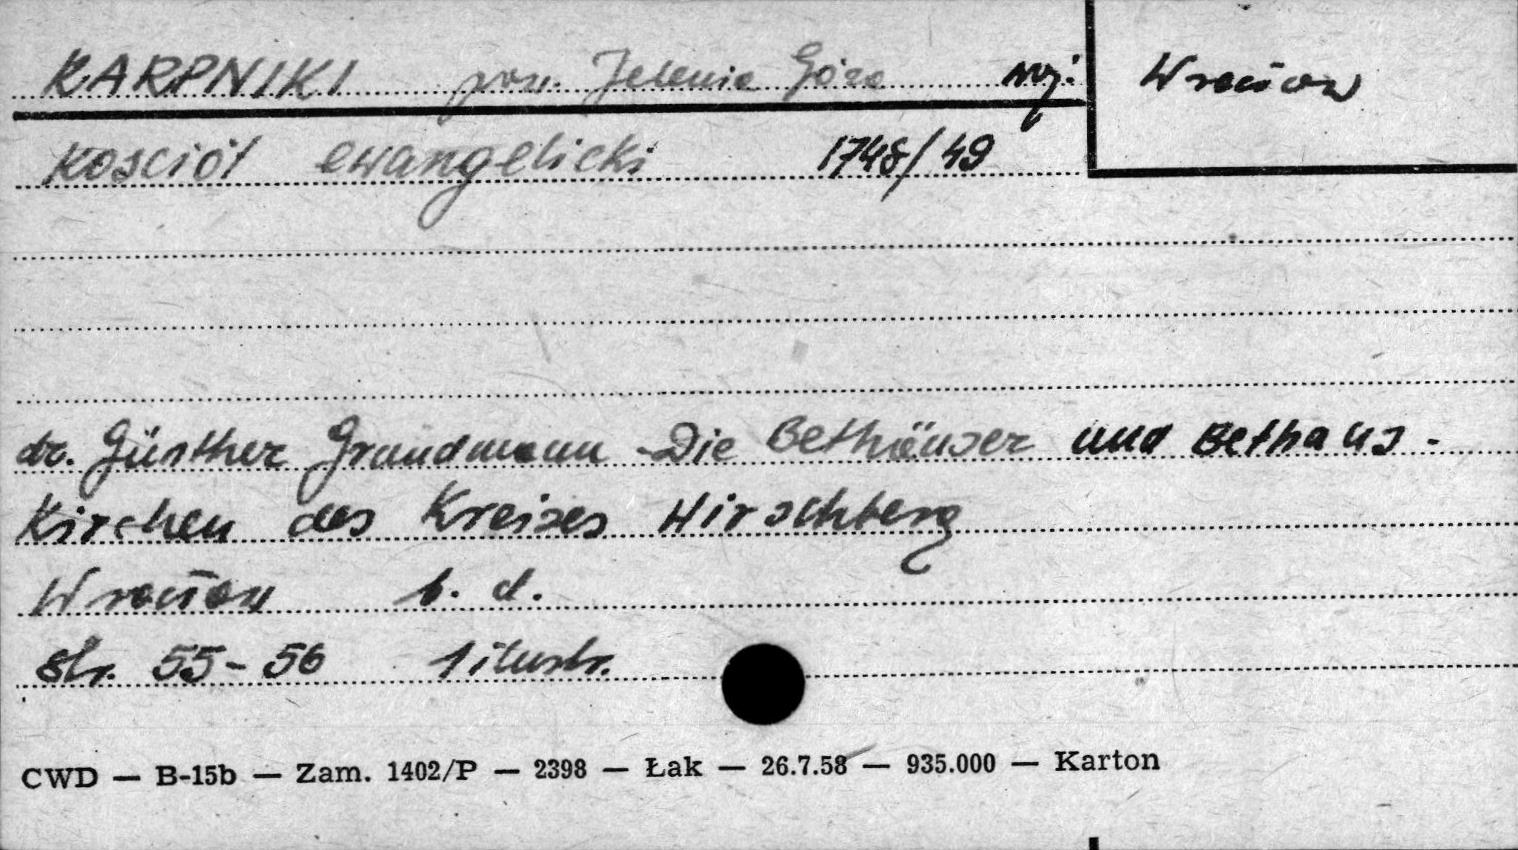 KARPNIKI pow. Jelenia Góra woj. Wrocław
Kościół ewangelicki 1748/49
dr. Günther Grundmann - Die Bethäuser und Bethaus-
Kirchen des Kreises Hirschberg
Wrocław b. d.
str. 55-56 1 ilustr.
CWD — B-15b — Zam. 1402/P — 2398 — Łak — 26.7.58 — 935.000 — Karton